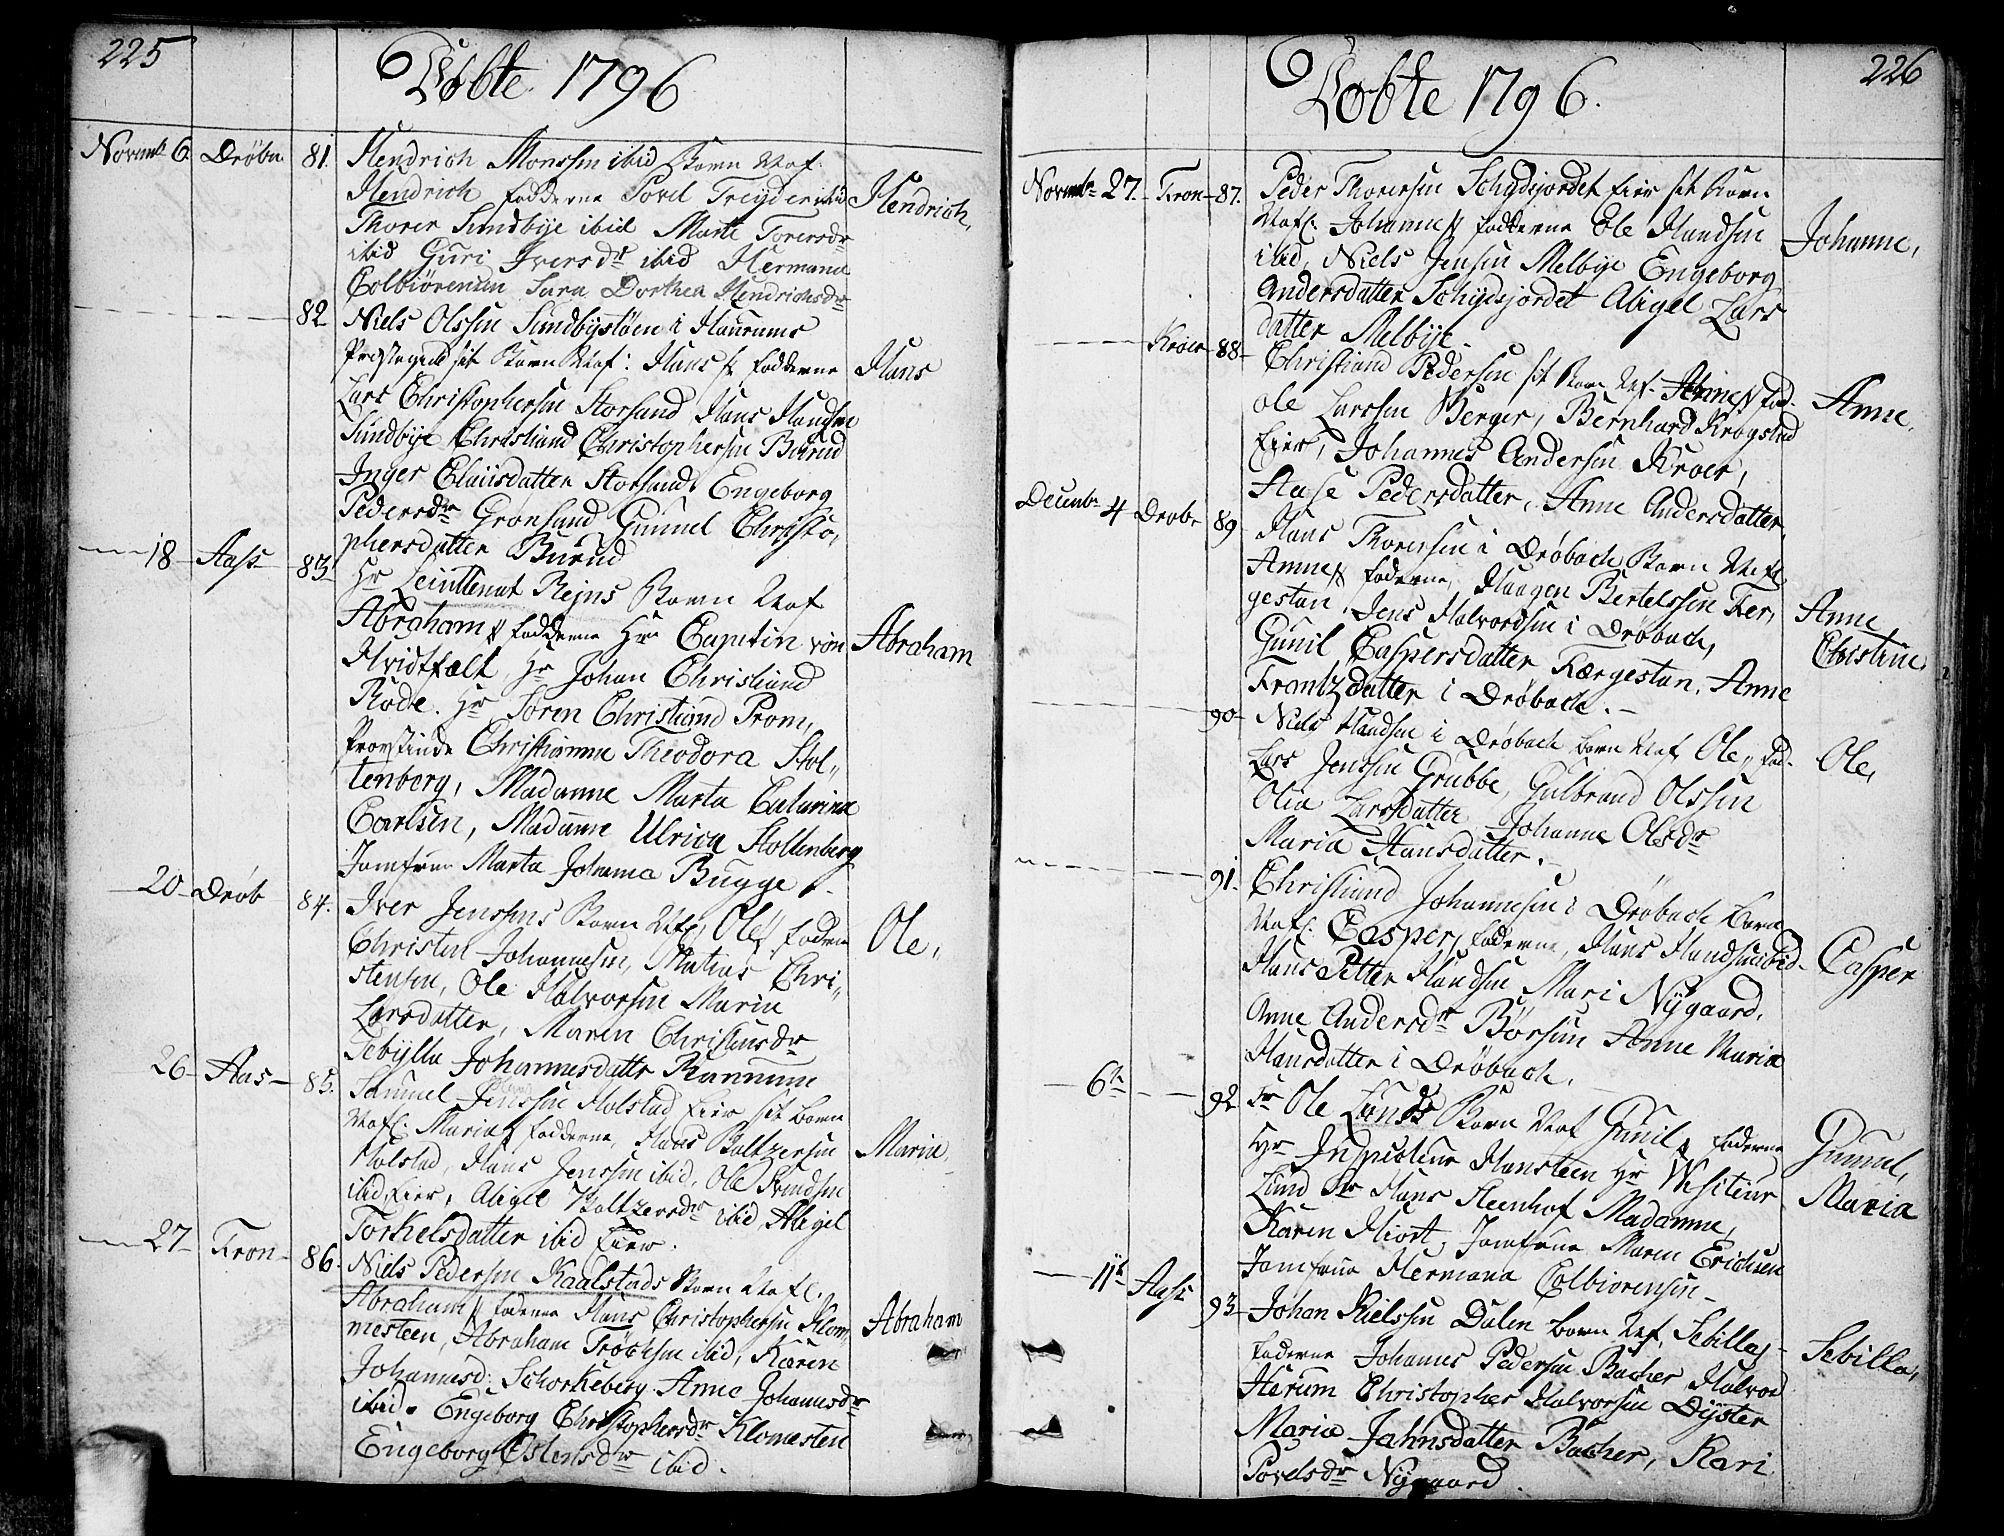 225
Döbte 1796
Novemb 6. Drøba 81. Hendrich Monssen ibid Barn Naf.
Hendrich fadderne Povel Treyder ibid Hendrich,
Thorer Sundbye ibid Marte Torersdr
ibid Guri Iversdr ibid Hermana
Colbiørensen Sara Dorthea Hendrichsdr
82 Niels Olssen Sundbystøen i Haurums
Præstegield sit Barn Naf: Hans fadderne Hans
Lars Christophersen Storsand Hans Handsen
Sundbye Christiand Christophersen Burud
Inger Clausdatter Storsand Engeborg
Pedersdr Grønsand Gunnel Christo,
phersdatter Burud
18 Aass 83. Hr Leinttenat Rejns Barn Naf
Abraham fadderne Hr Capetin von Abraham
Hvidtfält, Hr Johan Christiand
Rode. Hr Sören Christiand Prom,
Provstinde Christianne Theodora Stol,,
tenberg, Madamme Marta Catarina
Carlsen, Madamm Ulrica Stoltenberg
Jomfrue Marta Johanna Bugge
20 Drøb 84. Iver Jenssens Barn Nafl, Ole fadderne Ole,
Christen Johannesen, Matias Chri,,
stensen, Ole Halvorsen Maria
Larsdatter, Maren Christensdr
Sebylla Johannesdattr Ramme
26 Aas 85. Samuel Jenssen Holstad Eier sit barn
Nafl. Maria fadderne, Hans Baltzersen Maria
Holstad, Hans Jenssen ibid, Ole Svendsen
ibid Eier, Abigel Baltzersdr ibid Abigel
Torkelsdatter ibid Eier.
27 Fron 86. Niels Pedersen Kaalstads Barn Nafl.
Abraham faderne Hans Christophersen Klom, Abraham
mesteen, Abraham Trøelssen ibid, Karen
Johannesd: Schorkeberg Anne Johannesdr
ibid. Engeborg Christophersdr Klomesten
Engeborg Ostensdr ibid.
226
Döbte 1796.
Novemb 27. Fron 87. Peder Thorersen Schydsjordet Eier sit Barn
Nafl. Johanne fadderne Ole Handsen Johanne,
ibid, Niels Jensen Melbye Engeborg
Andersdatter Schydsjordet Abigel Lars
datter Melbye.
Kroer 88 Christiand Pedersen sit Barn Naf. Anne fad- Anne,
Ole Larssen Berger, Bernhard Krogstad
Eier, Johannes Andersen Kroer,
Aase Pedersdatter, Anne Andersdatter,
Decemb 4 Drob 89 Hans Thoresen i Drøbach Barn Nafl
Anne faderne, Haagen Bertelssen Fer, Anne
gestan, Jens Halvordsen i Drøbach, Christine
Gunil Caspersdatter Færgestan, Anne
Frantzdatter i Drøbach.
90 Niels Handsen i Drøbach barn Naf. Ole, fad- Ole,
Lars Jenssen Grubbe, Gulbrand Olssen
Olia Larsdatter Johanne Olsdr
Maria Hansdatter.
91. Christiand Johannesen i Drøbach barn
Nafl. Casper, faderne, Hans Handsen ibid- Casper
Hans Petter Handsen Mari Nygaard,
Anne Andersdr Børsun Anne Maria
Hansdatter i Drøbach.
6te 92 Sr Ole Lunds Barn Naf Gunil faderne Gunnel,
Hr Inspecteur Hansteen Hr Visiteur Maria
Lund Sr Hans Steenhof Madamme,
Karen Hiort, Jomfrue Maren Erichsen
Jomfrue Hermana Colbiorensen
11te Aass 93 Johan Nielssen Dalen barn Naf. Sebilla Sebilla,
faderne Johannes Pedersen Bacher Halvor
Herum Christopher Halvorsen Dyster
Maria Jahnsdatter Bacher, Kari
Povelsdr Nygaard